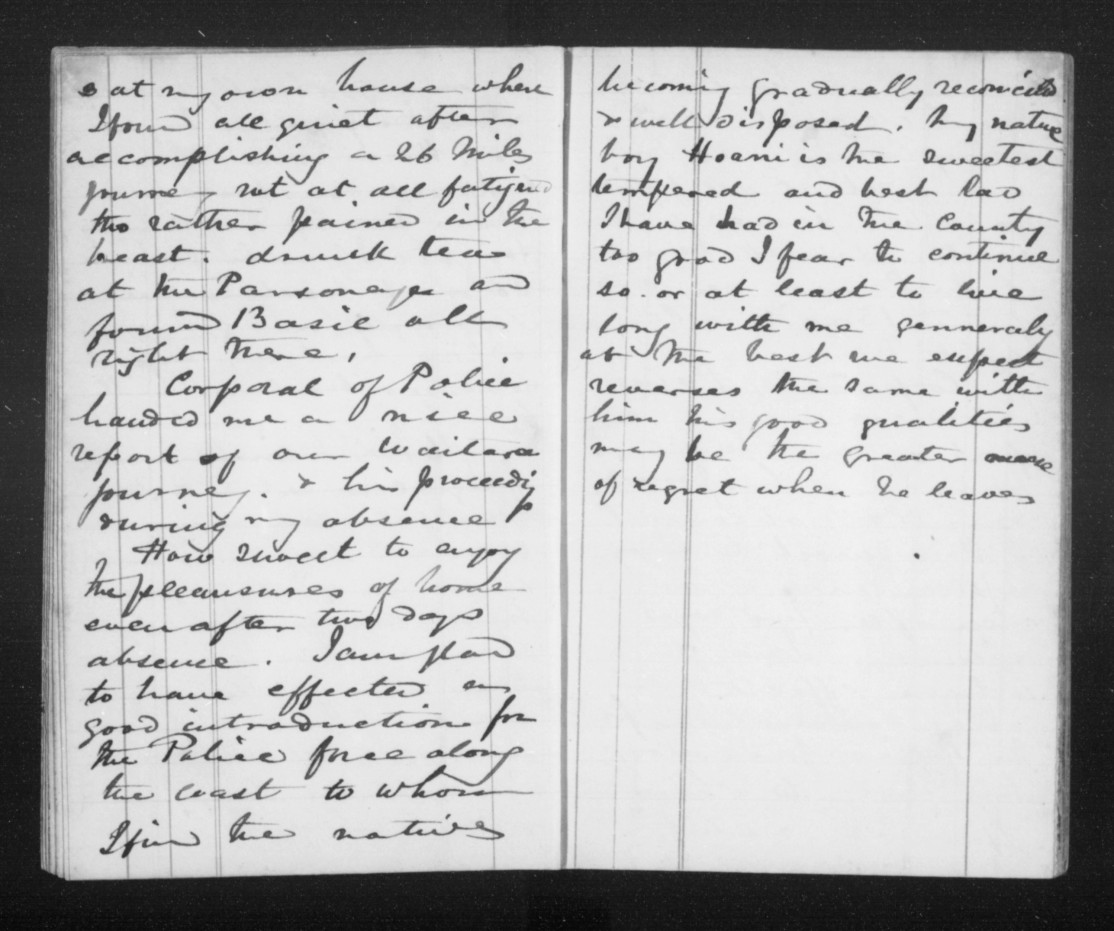 & at my own house where
I found all quiet after
accomplishing a 26 Miles
journey not at all fatigued
tho rather pained in the
breast. drank tea
at the Parsonage and
found Basil all
right there.
Corporal of Police
handed me a nice
report of our Waitara
journey. & his proceedings
during my absence
How sweet to enjoy
the pleasures of home
even after two days
absence. I am glad
to have effected my
good introduction for
the Police force along
the coast to whom
I find the natives
becoming gradually reconciled
& well disposed. My native
boy Hoani is the sweetest
tempered and best lad
I have had in the County
too good I fear to continue
so. or at least to live
long with me generaly
at the best we expect
reverses the same with
him his good qualities
may be the greater cause
of regret when he leaves